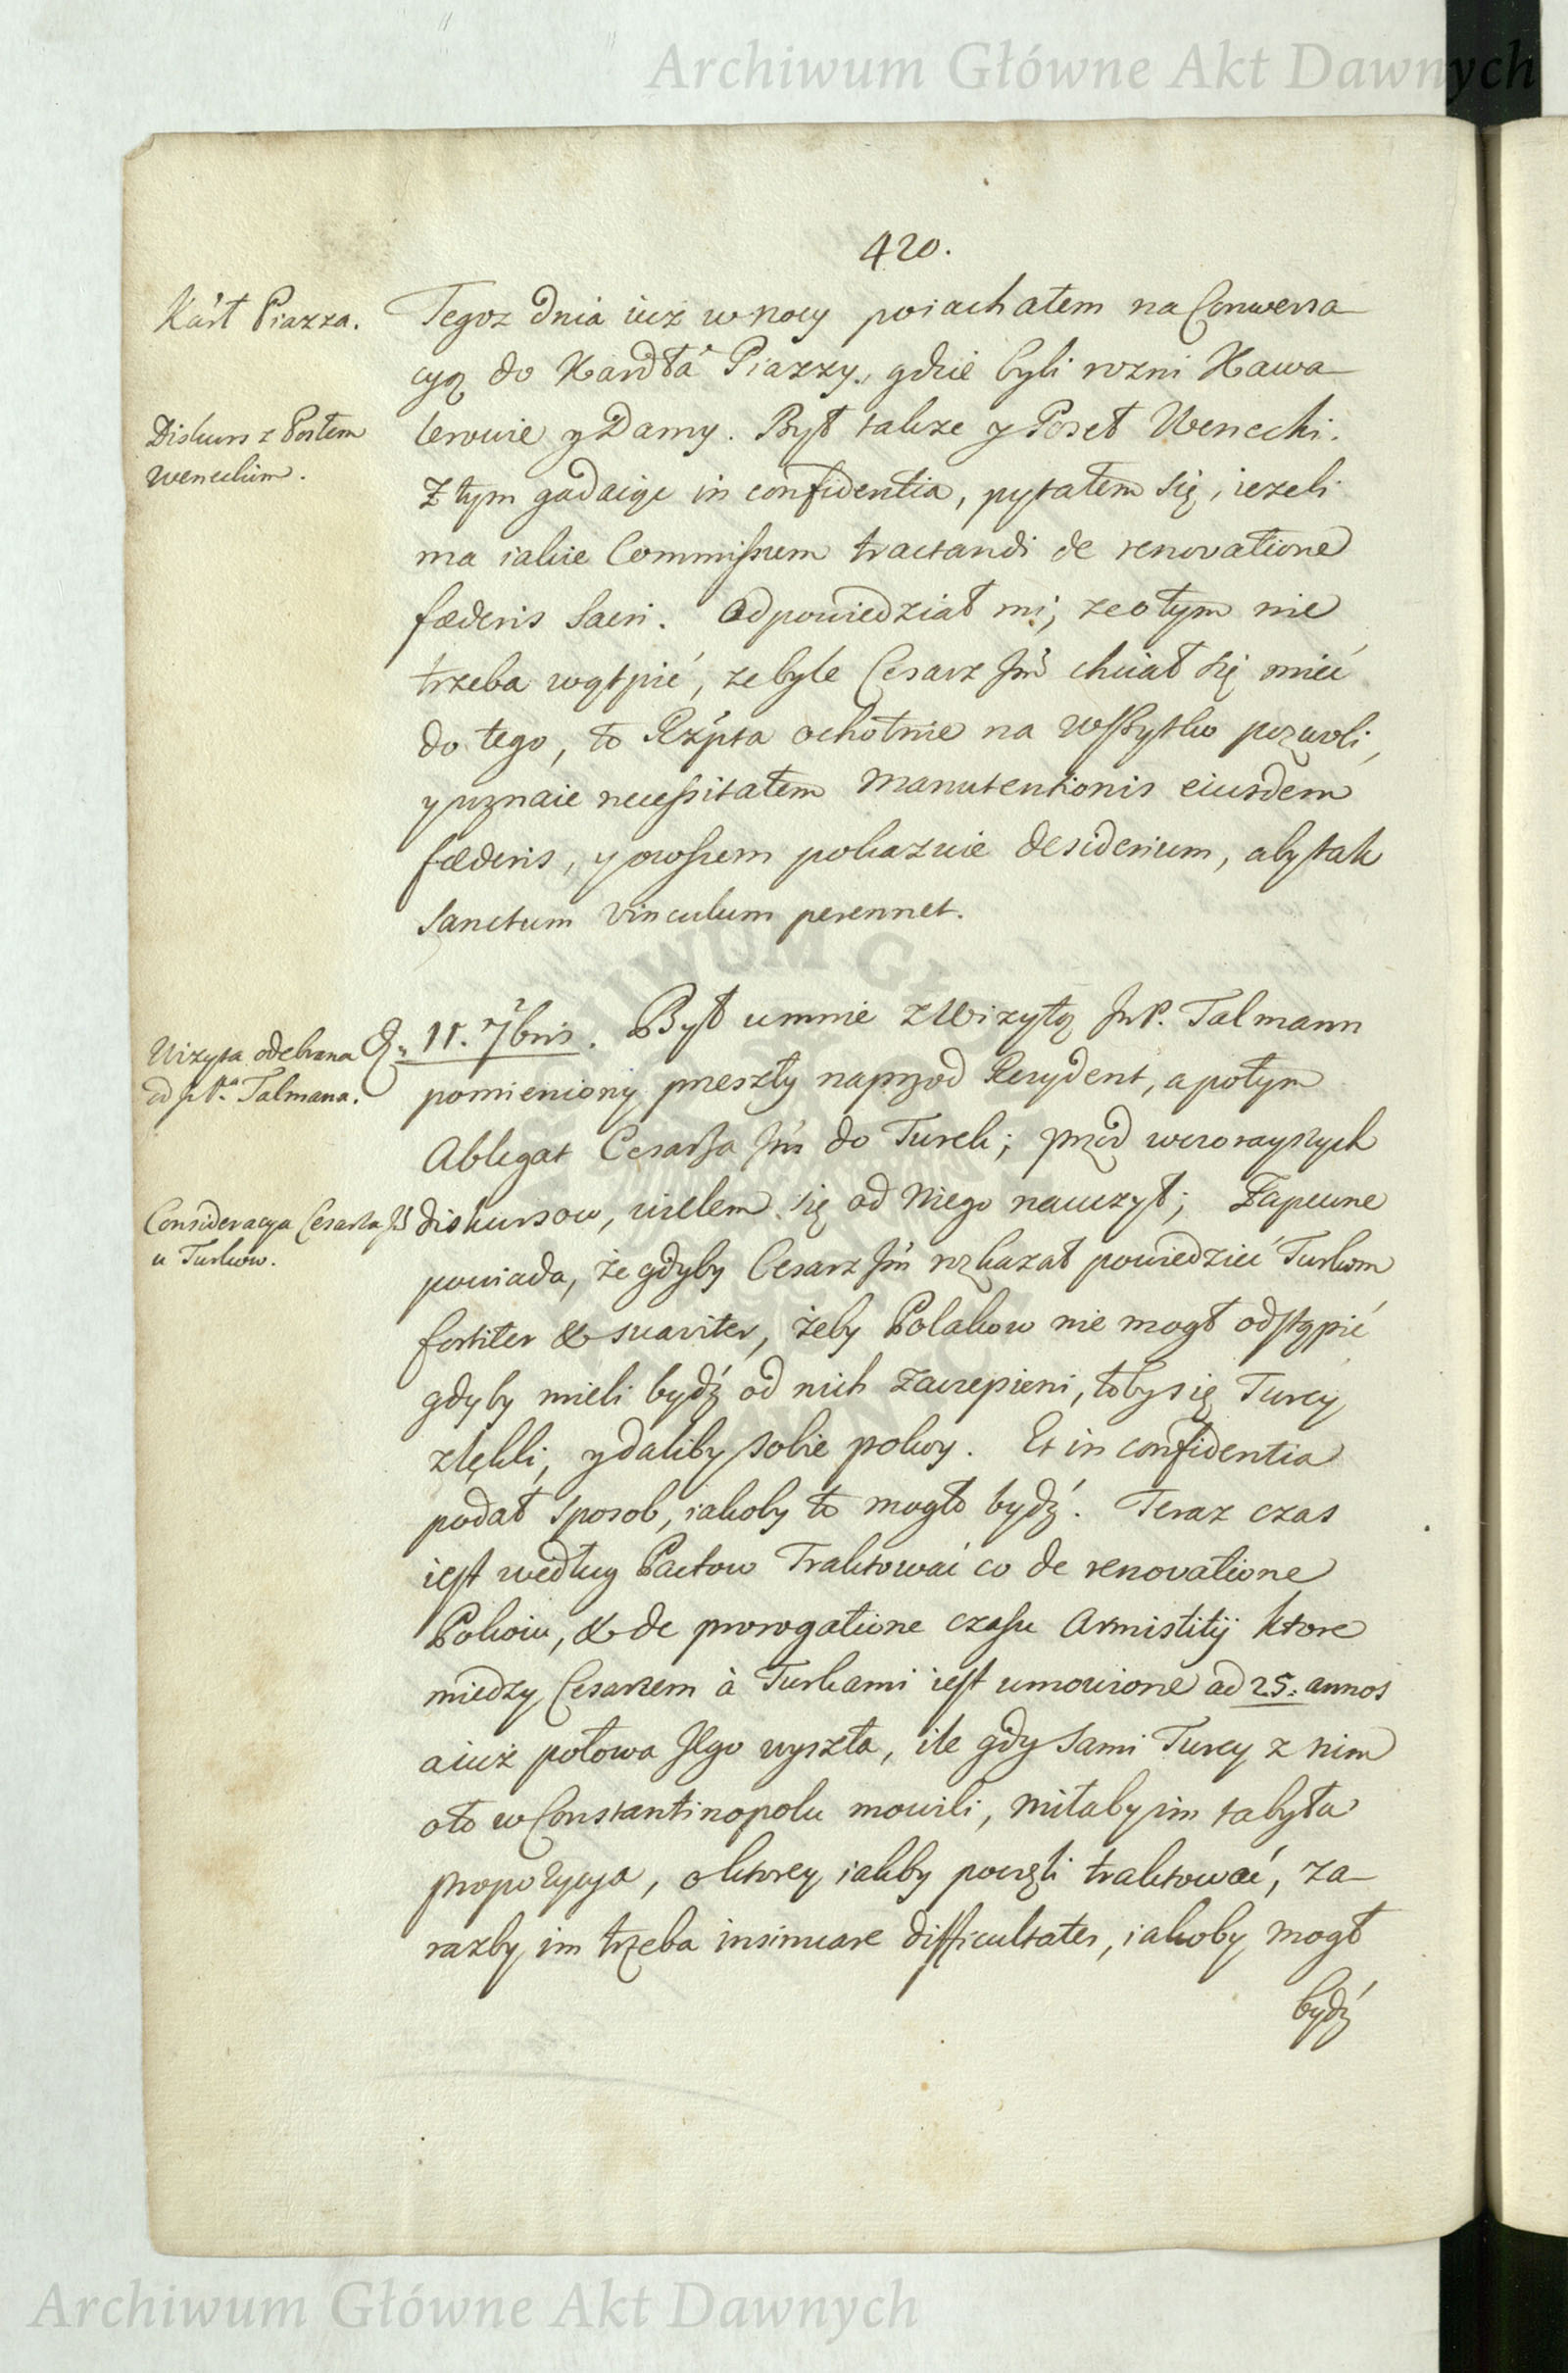 Archiwum Główne Akt Dawnych
420.
Kárł Piazza.
Tegoz dnia iuż w nocy poiachałem na Conwersa-
cyą do Kardłá Piazzy, gdzie byli rozni Kawa-
Diskurs z Posłem
Weneckim.
lerowie y Damy. Był takze y Poseł Wenecki.
Z tym gadaiąc in confidentia, pytałem się, iezeli
ma iakie Commissum tractandi de renovatione
fœderis Sacri. Odpowiedział mi, ze o tym nie
trzeba wątpić, ze byle Cesarz Jmć chciał się mieć
do tego, to Rzpta ochotnie na wszytko pozwoli,
y uznaie necessitatem manutentionis eiusdem
fœderis, y owszem pokazuie desiderium, aby tak
Sanctum vinculum perennet.
Wizyta odebrana
od JP. Talmana.
D. 11. 7bris. Był u mnie z Wizytą JmP. Talmann
pomieniony przeszły naprzod Rezydent, a potym
Ablegat Cesarza Jmć do Turek; przed wczorayszych
Consideracya Cesarza JM
u Turkow.
diskursow, wielem się od niego nauczył; Zapewne
powiada, że gdyby Cesarz Jmć rozkazał powiedzieć Turkom
fortiter & suaviter, żeby Polakow nie mogł odstąpić
gdyby mieli bydź od nich zaczepieni, to by się Turcy
zlękli, y daliby sobie pokoy. Et in confidentia
podał sposob, iakoby to mogło bydź. Teraz czas
iest według Pactow Traktować co de renovatione
Pokoiu, & de prorogatione czasu Armistitij ktore
miedzy Cesarzem à Turkami iest umowione ad 25. annos
a iuż połowa Jego wyszła, ile gdy sami Turcy z nim
o to w Constantinopolu mowili, miłaby im ta była
propozycya, o ktorey iakby poczęli traktować, za-
razby im trzeba insinuare difficultates, iakoby mogł
bydź
Archiwum Główne Akt Dawnych